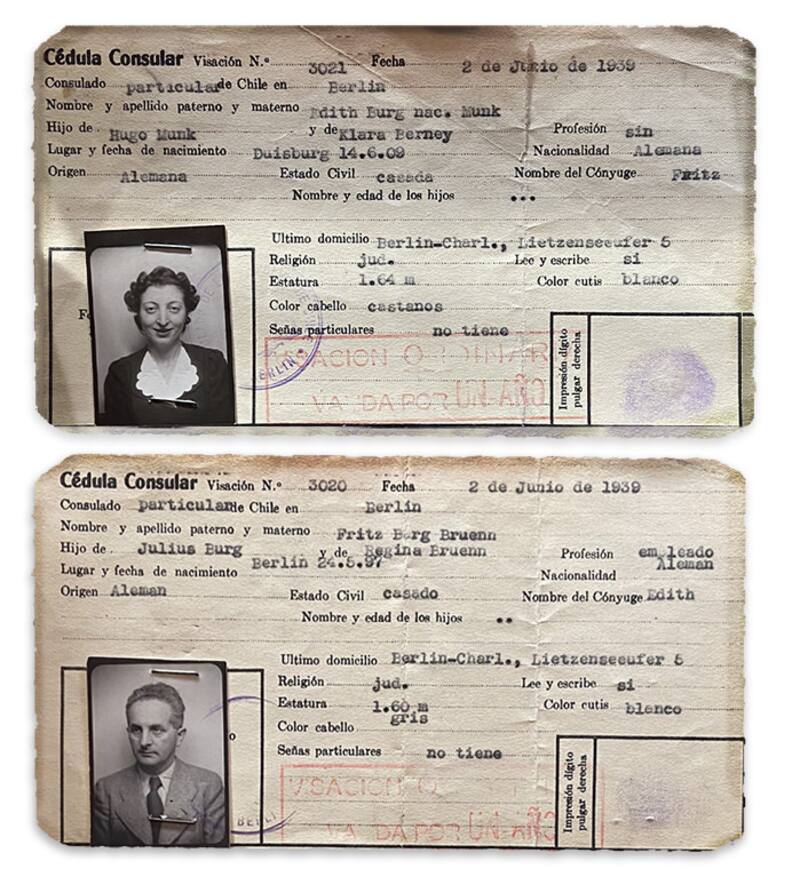 Cédula Consular Visación N.º 3021 Fecha 2 de Junio de 1939
Consulado particular de Chile en Berlin
Nombre y apellido paterno y materno Edith Burg nac. Munk
Hijo de Hugo Munk y de Klara Berney Profesión sin
Lugar y fecha de nacimiento Duisburg 14.6.09 Nacionalidad Alemana
Origen Alemana Estado Civil casada Nombre del Cónyuge Fritz
Nombre y edad de los hijos ...
Ultimo domicilio Berlin-Charl., Lietzenseeufer 5
Religión jud. Lee y escribe si
Estatura 1.64 m Color cutis blanco
Color cabello castanos
Señas particulares no tiene
Impresión dígito pulgar derecha
BERLIN
POR UN AÑO
Cédula Consular Visación N.º 3020 Fecha 2 de Junio de 1939
Consulado particular de Chile en Berlin
Nombre y apellido paterno y materno Fritz Burg Bruenn
Hijo de Julius Burg y de Regina Bruenn Profesión empleado
Lugar y fecha de nacimiento Berlin 24.5.97 Nacionalidad Aleman
Origen Aleman Estado Civil casado Nombre del Cónyuge Edith
Nombre y edad de los hijos ..
Ultimo domicilio Berlin-Charl., Lietzenseeufer 5
Religión jud. Lee y escribe si
Estatura 1.60 m Color cutis blanco
Color cabello gris
Señas particulares no tiene
Impresión dígito pulgar derecha
VISACION
POR UN AÑO